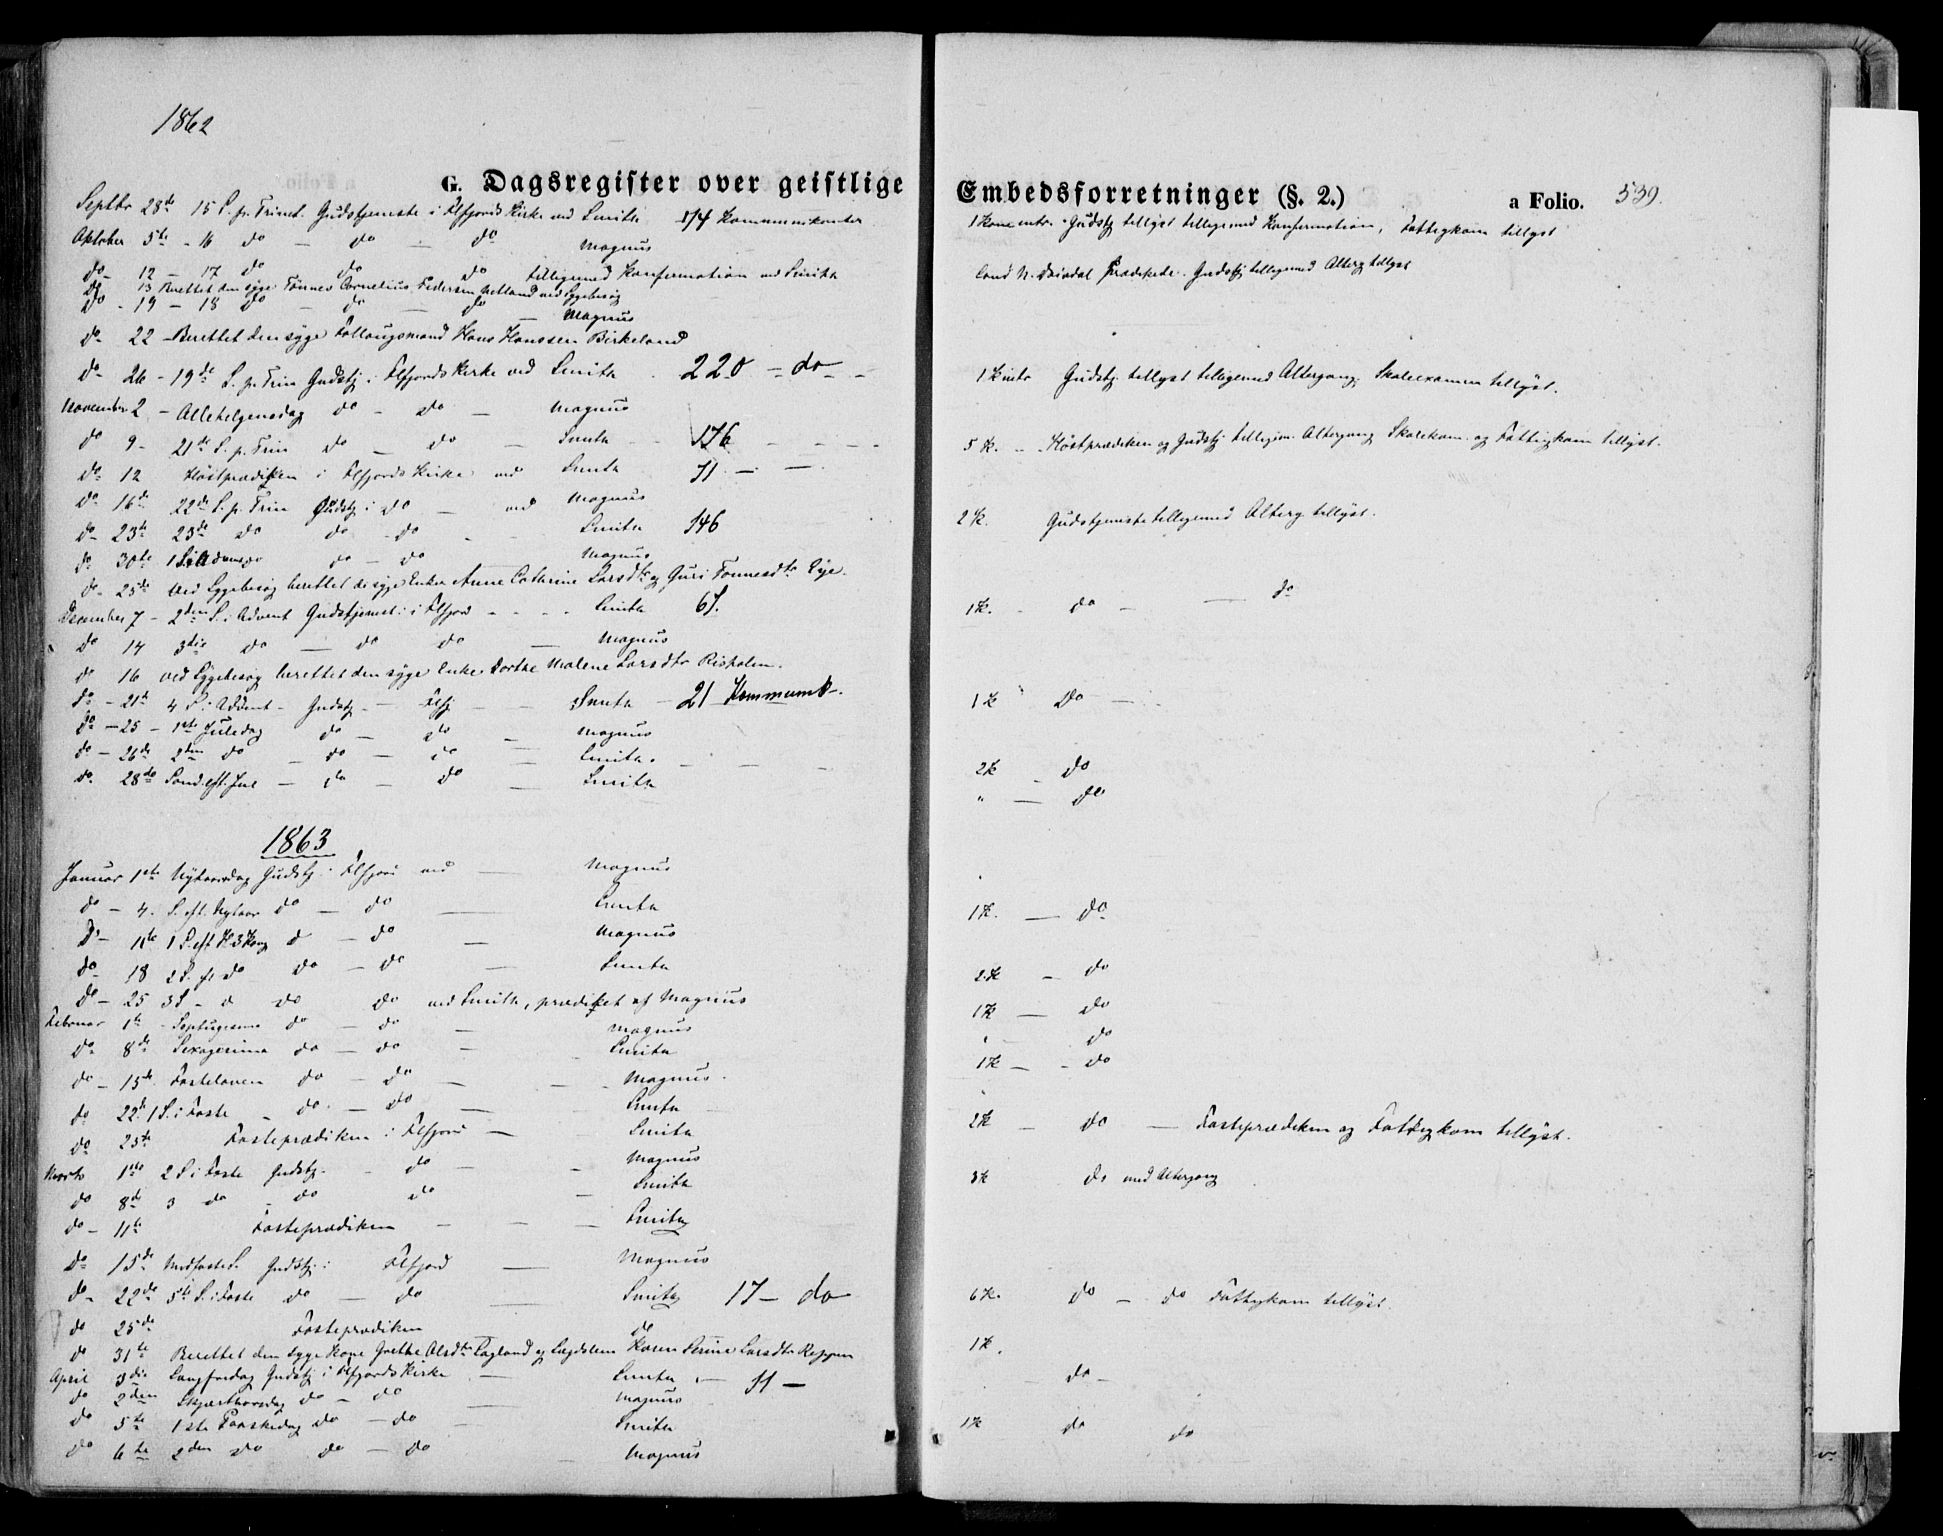 1862
G. Dagsregister over geistlige
Septbr 28de 15 S. p. Trinit. Gudstjeneste i Flifjords Kirke ved Smith 174 Kommunikanter
Oktober 5te - 16 do - do - do Magnus
do - 12 - 17 do do do tilligemed Konfirmation ved Smith
do - 13 Berettet den syge Tønnes Cornelius Pedersen ved Sygebesøg
do - 19 - 18 do - do - do - Magnus
do - 22 - Berettet den syge Hans Hanssen Birkeland
do - 26 - 19de S. p. Trin Gudstj. i Kirke ved Smith 220 - do -
November 2 - Allehelgensdag do - do - Magnus
do 9 - 21de S. p. Trin do - do - Smith - 176 - - -
do - 12 Høstprædiken i Kirke ved Smith 51 - -
do 16de 22de S. p. Trin Gudstj i do - ved Magnus
do - 23de 23de do do - do - Smith 146
do - 30te 1 S. i Advent do - do Magnus
do - 25de ved Sygebesøg berettet de syge Enker Anne Cathrine Larsdtr og Guri Tønnesdtr Eye.
December 7 - 2den S. i Advent Gudstjenest. i - - - Smith 67.
do 14 3die do - do do - Magnus
do 16 ved Sygebesøg berettet den syge Enke Dorthe Malene Larsdtr Risholm.
do - 21de 4 S. i Advent - Gudstj. - - Smith - 21 Kommunik.
do - 25 - 1ste Juledag do - do - Magnus
do - 26de 2den do - do - do - Smith. - - -
do - 28de Sønd. eft. Jul - do - do - Smith
1863
Januar 1ste Nytaarsdag Gudstj. i ved - Magnus
do - 4. S. eft. Nytaar do - do - Smith
do - 11te 1 S. eft H 3 Kong do - do - Magnus
do - 18 2 S. do do - do - Smith
do - 25 3 S - do do do ved Smith, prædiket af Magnus
Februar 1te - Septuagesima do - do - Magnus
do - 8de Sexagesima do - do - Smith
do - 15de Fastelaven do - do - - Magnus.
do - 22de 1 S. i Faste - do - do - Smith
do 25de Fasteprædiken i - Smith
Marts 1ste 2 S. i Faste Gudstj. - do - Magnus
do 8de 3 do - do do - Smith
do - 11te Fasteprædiken - - - Smith
do - 15de Midfaste S. Gudstj. i - Magnus
do - 22de 5te S. i Faste do - do - Smith 17 - do
do 25de Fasteprædiken - do
do 31te Berettet den syge Kone Grethe Alsdtr og Karen Serine Larsdtr Reppen
April 3die Langfredag Gudstj. i Kirke - Smith - 51 -
do 2den Skjærthorsdag do - do - Magnus
do 5te 1ste Paaskedag do - do - Smith
do 6te 2den do do - do Magnus
Embedsforretninger (§. 2.)
a Folio. 539.
1 Kone intr. Gudstj tillyst tilligemed Konfirmation, Fattigkom tillyst
Prædikede. Gudstj tilligemed Alterg tillyst
1 K intr Gudstj. tillyst tilligemed Altergang. Skoleexamen tillyst.
5 K. - Høstprædiken og Gudstj. tilligem. Altergang Skolekom. og Fattigkom tillyst.
2 K. Gudstjeneste tilligemed Alterg tillyst.
1 K. - do - - do
1 K do -
2 K - do
" - do
1 K. - do
2 K - do
1 K - do
" - do
1 K - - do
2 K - do - Fasteprædiken og Fattigkom tillyst.
3 K do med Altergang
6 K. do - do Fattigkom tillyst.
1 K.
- do -
1 K do do